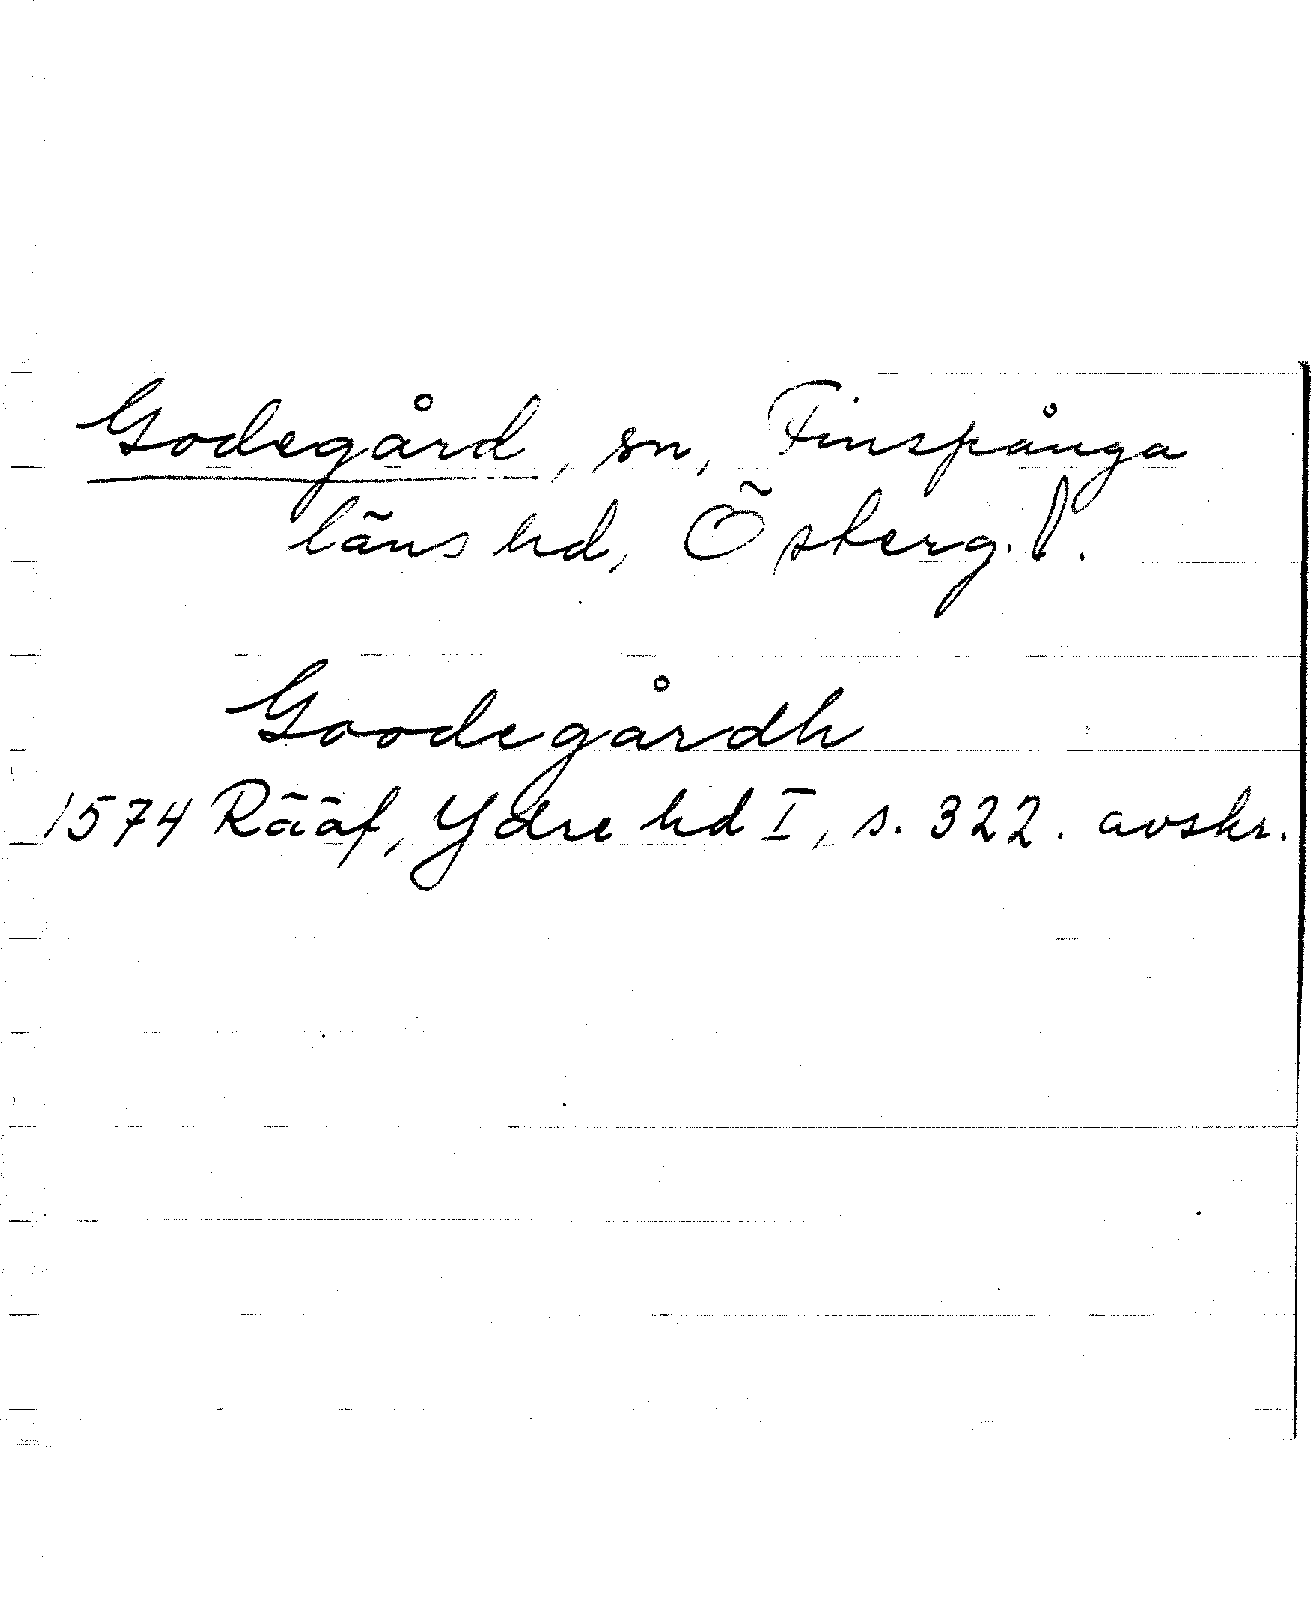 Godegård, sn, Finspånga
läns hd, Österg. l.
Goodegårdh
1574 Rääf, Ydre hd I, s. 322. avskr.